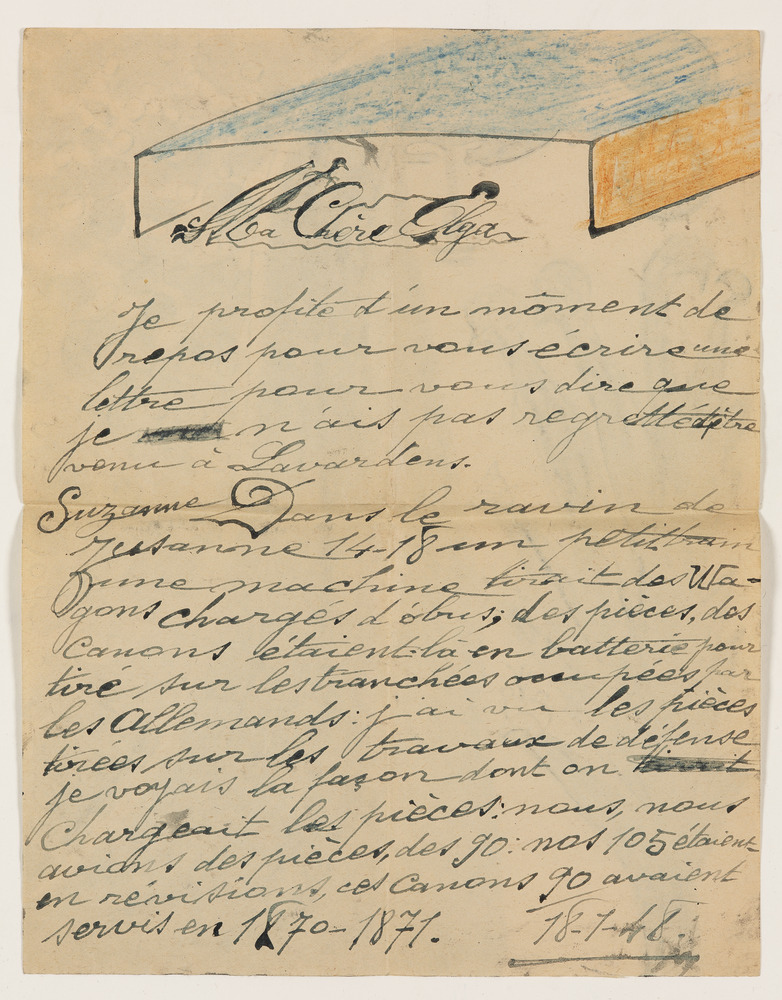 Ma Chère Olga
Je profite d'un môment de
repos pour vous écrire une
lettre pour vous dire que
je n'ais pas regretté d'être
venu à Lavardens.
Suzanne Dans le ravin de
Zusanne 14-18 un petit train
une machine tirait des Wa-
gons chargés d'óbus; des pièces, des
Canons étaient là en batterie pour
tiré sur les tranchées occupées par
les Allemands: j'ai vu les pièces
tirées sur les travaux de défense
je voyais la façon dont on
chargeait les pièces: nous, nous
avions des pièces, des 90: nos 105 étaient
en révisions, ces Canons 90 avaient
servis en 1870-1871. 18-1-48.